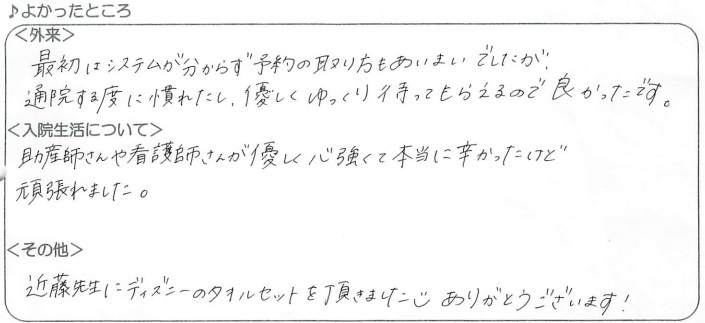 ♪よかったところ
＜外来＞
最初はシステムが分からず予約の取り方もあいまいでしたが、
通院する度に慣れたし、優しくゆっくり待ってもらえるので良かったです。
＜入院生活について＞
助産師さんや看護師さんが優しく心強くて本当に辛かったけど
頑張れました。
＜その他＞
近藤先生にディズニーのタオルセットを頂きました ありがとうございます！